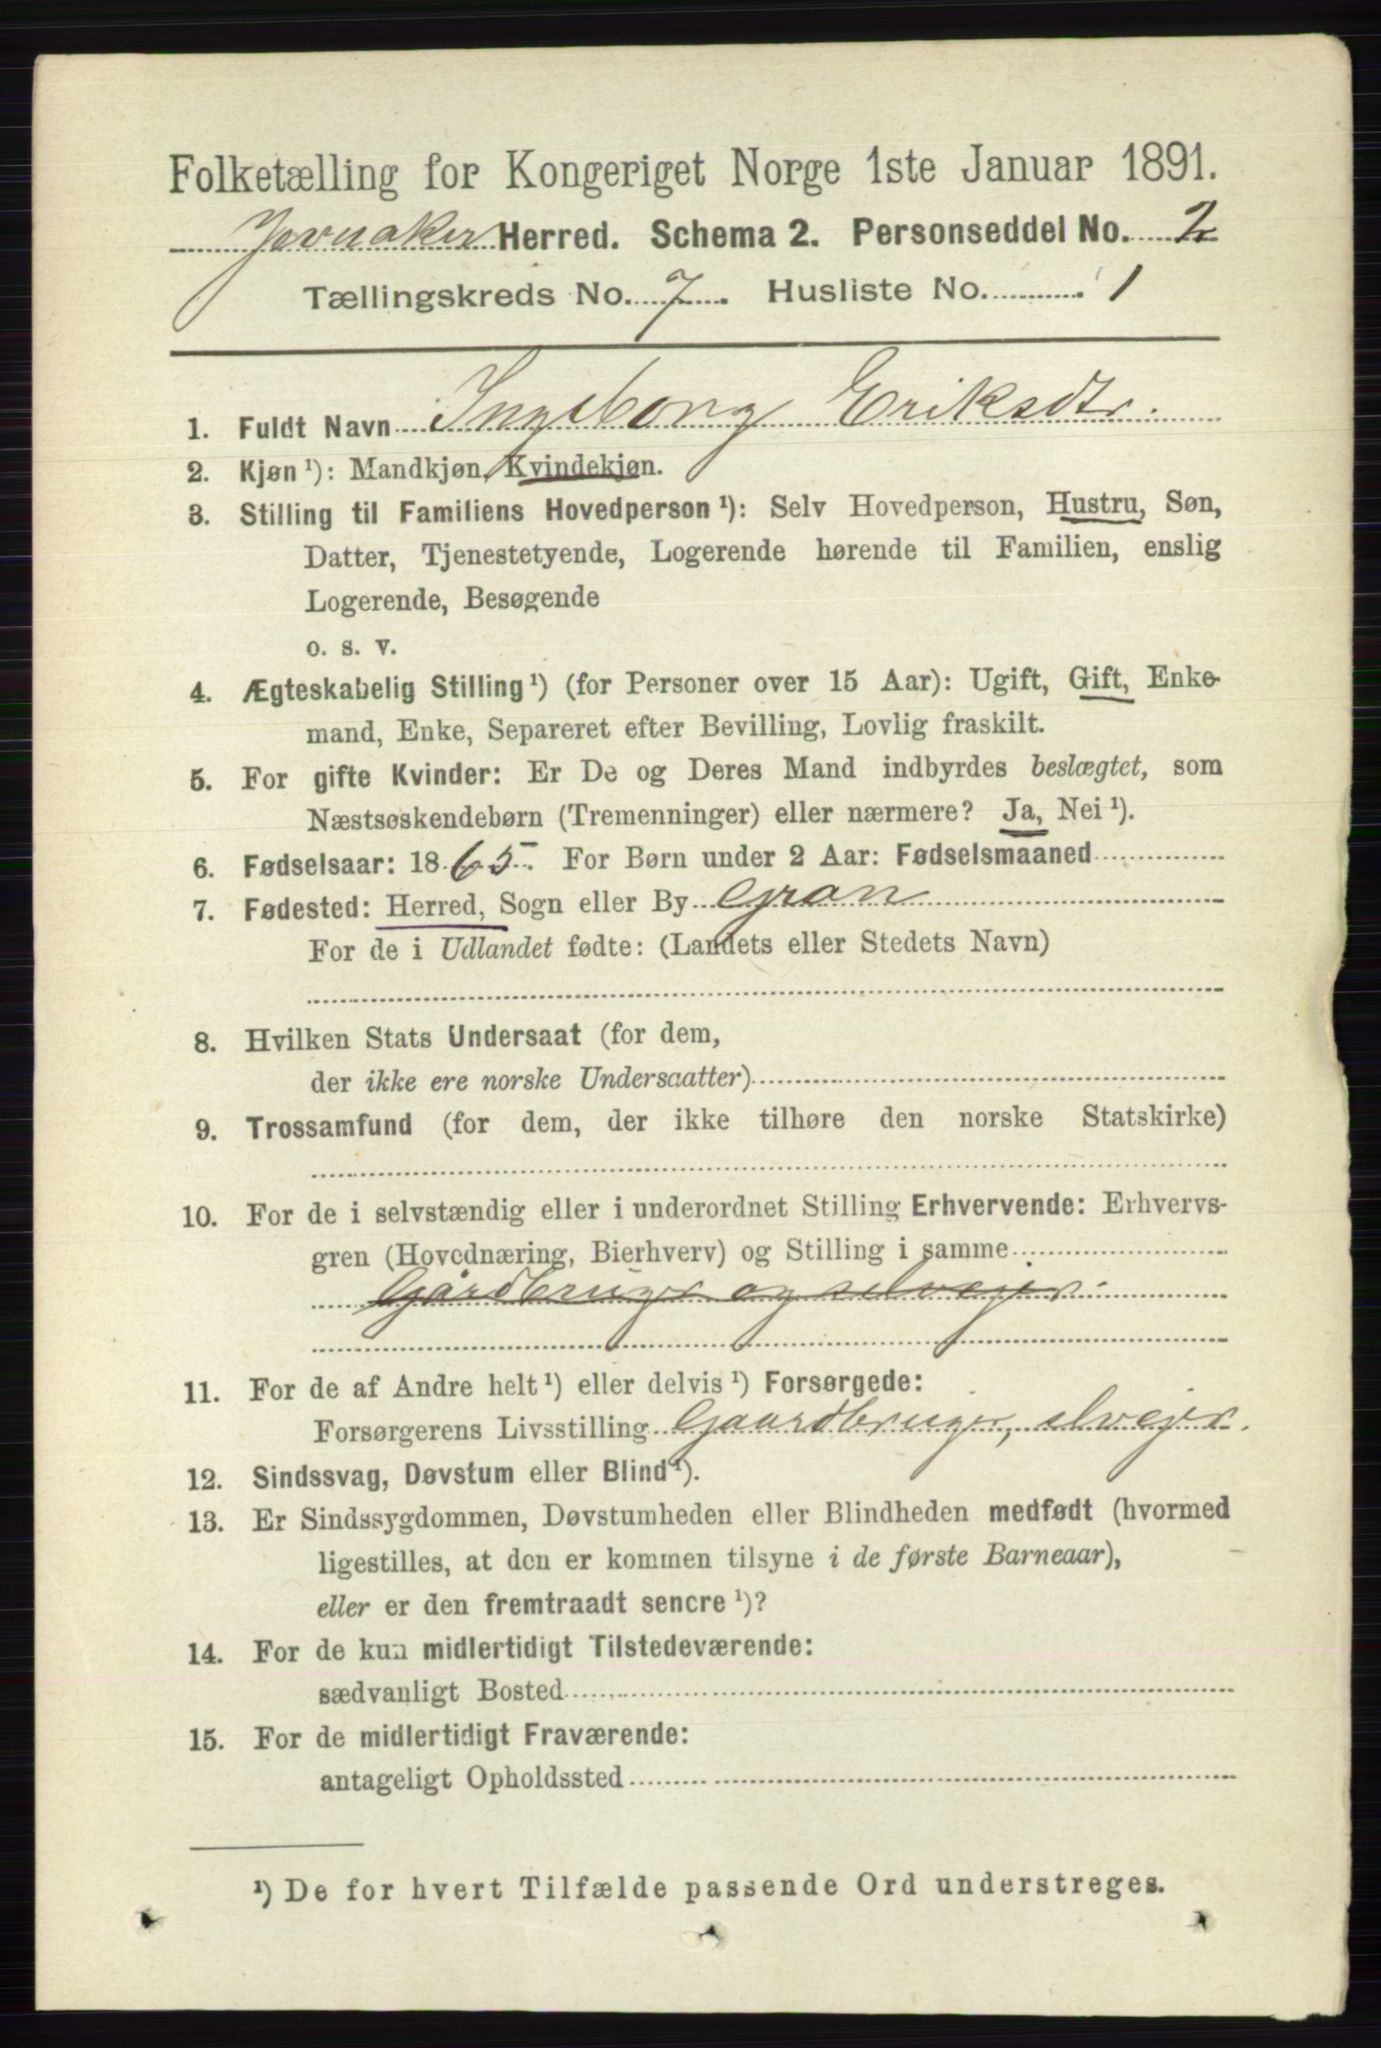 Folketælling for Kongeriget Norge 1ste Januar 1891.
Jevnaker Herred. Schema 2. Personseddel No. 2
Tællingskreds No. 7. Husliste No. 1
1. Fuldt Navn Ingeborg Eriksdtr.
2. Kjøn ¹): Mandkjøn, Kvindekjøn.
3. Stilling til Familiens Hovedperson ¹): Selv Hovedperson, Hustru, Søn,
Datter, Tjenestetyende, Logerende hørende til Familien, enslig
Logerende, Besøgende
o. s. v.
4. Ægteskabelig Stilling ¹) (for Personer over 15 Aar): Ugift, Gift, Enke-
mand, Enke, Separeret efter Bevilling, Lovlig fraskilt.
5. For gifte Kvinder: Er De og Deres Mand indbyrdes beslægtet, som
Næstsøskendebørn (Tremenninger) eller nærmere? Ja, Nei ¹).
6. Fødselsaar: 1865. For Børn under 2 Aar: Fødselsmaaned
7. Fødested: Herred, Sogn eller By Gran
For de i Udlandet fødte: (Landets eller Stedets Navn)
8. Hvilken Stats Undersaat (for dem,
der ikke ere norske Undersaatter)
9. Trossamfund (for dem, der ikke tilhøre den norske Statskirke)
10. For de i selvstændig eller i underordnet Stilling Erhvervende: Erhvervs-
gren (Hovednæring, Bierhverv) og Stilling i samme
Gårdbruger og selvejer.
11. For de af Andre helt ¹) eller delvis ¹) Forsørgede:
Forsørgerens Livsstilling Gaardbruger, selvejer.
12. Sindssvag, Døvstum eller Blind ¹).
13. Er Sindssygdommen, Døvstumheden eller Blindheden medfødt (hvormed
ligestilles, at den er kommen tilsyne i de første Barneaar),
eller er den fremtraadt senere ¹)?
14. For de kun midlertidigt Tilstedeværende:
sædvanligt Bosted
15. For de midlertidigt Fraværende:
antageligt Opholdssted
¹) De for hvert Tilfælde passende Ord understreges.